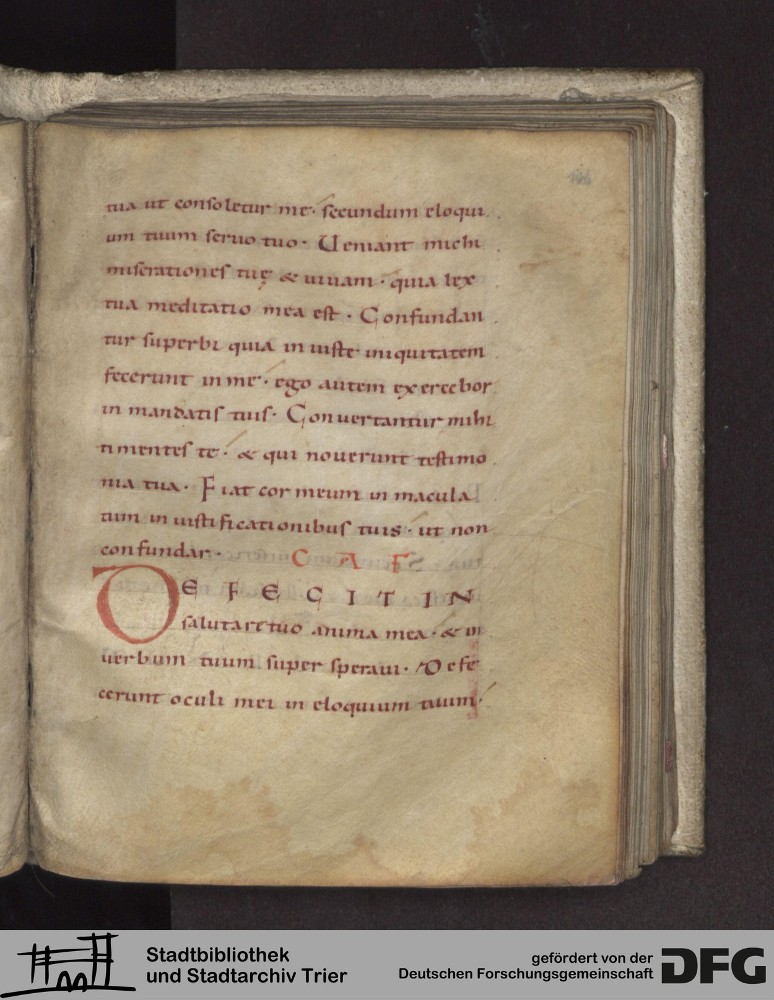 tua ut consoletur me · secundum eloqui
um tuum seruo tuo · Ueniant michi
miserationes tuę & uiuam · quia lex
tua meditatio mea est · Confundan
tur superbi quia iniuste iniquitatem
fecerunt in me · ego autem exercebor
in mandatis tuis · Conuertantur mihi
timentes te · & qui nouerunt testimo
nia tua · Fiat cor meum inmacula
tum in iustificationibus tuis · ut non
confundar · CAF
DEFECIT IN
salutare tuo anima mea · & in
uerbum tuum super speraui · Defe
cerunt oculi mei in eloquium tuum ·
Stadtbibliothek
und Stadtarchiv Trier
gefördert von der
Deutschen Forschungsgemeinschaft
DFG